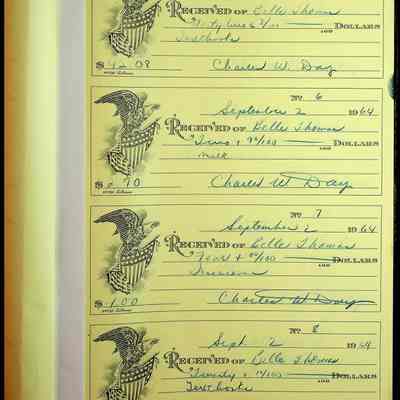 RECEIVED OF Belle Thomas
DOLLARS
Textbooks
$42.08 Charles W. Day
No 6
September 2 1964
RECEIVED OF Belle Thomas
100 DOLLARS
milk
$ .90 Charles W Day
No 7
September 2 1964
RECEIVED OF Belle Thomas
Four + 00/100 DOLLARS
$ .00 Charles W Day
No 8
Sept 2 1964
RECEIVED OF Belle Thomas
Twenty + /100 DOLLARS
Textbooks